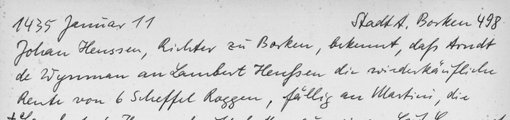 1435 Januar 11 Stadt A. Borken 498
Johan Henssen, Richter zu Borken, bekennt, daß Arndt
de Wynman an Lambert Henßen die wiederkäufliche
Rente von 6 Scheffel Roggen, fällig an Martini, die